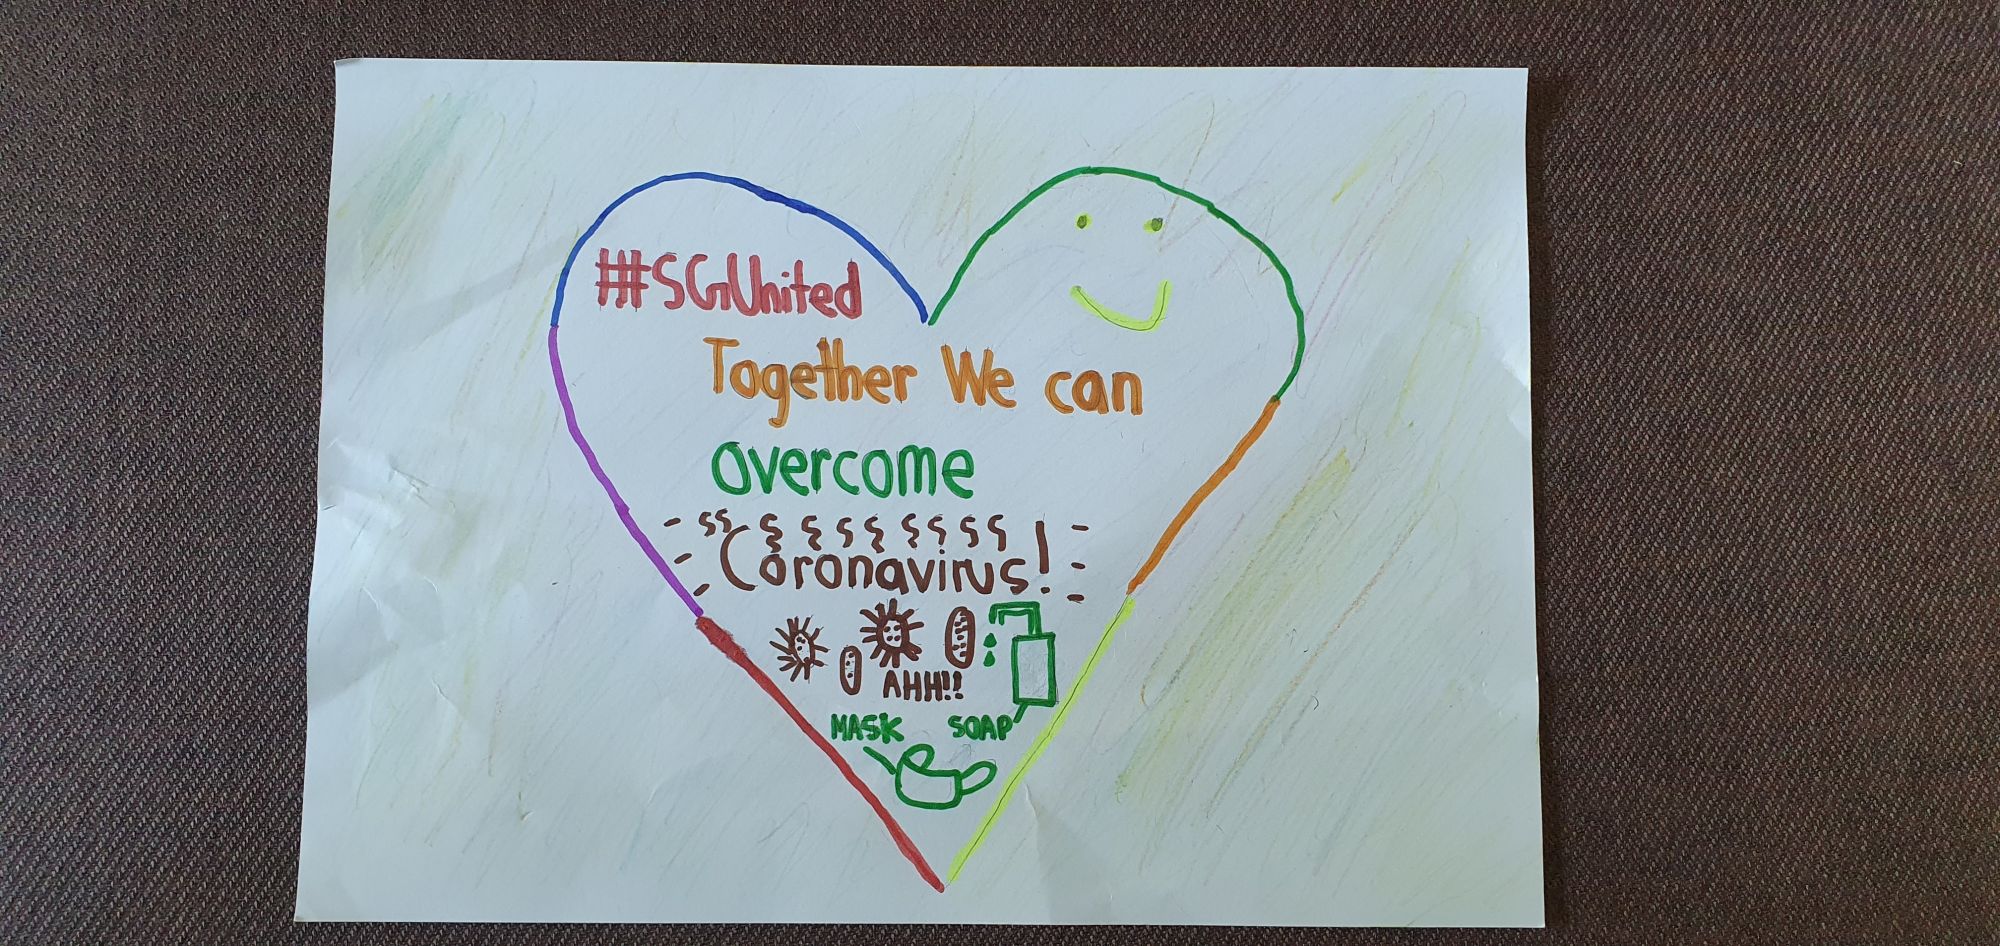 #SGUnited
Together We can
overcome
Coronavirus!
AHH!!
MASK SOAP